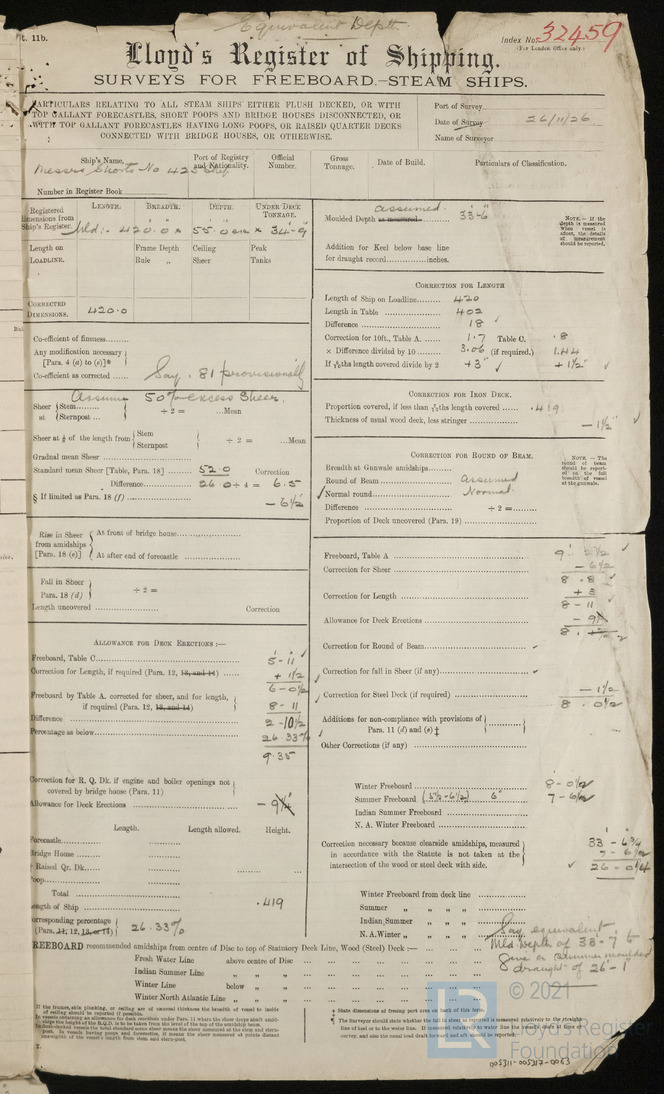 Equivalent Deptt.
t. 11b.
Index No. 32459
(For London Office only.)
Lloyd's Register of Shipping.
SURVEYS FOR FREEBOARD.—STEAM SHIPS.
PARTICULARS RELATING TO ALL STEAM SHIPS EITHER FLUSH DECKED, OR WITH
TOP GALLANT FORECASTLES, SHORT POOPS AND BRIDGE HOUSES DISCONNECTED, OR
WITH TOP GALLANT FORECASTLES HAVING LONG POOPS, OR RAISED QUARTER DECKS
CONNECTED WITH BRIDGE HOUSES, OR OTHERWISE.
Port of Survey
Date of Survey 26/11/26
Name of Surveyor
Ship's Name, Port of Registry and Nationality. Official Number. Gross Tonnage. Date of Build. Particulars of Classification.
Messrs Shorts No 425 Ship
Number in Register Book
LENGTH. BREADTH. DEPTH. UNDER DECK TONNAGE.
Registered dimensions from Ship's Register. Mld:- 420.0 × 55.0 × 34-9
Length on LOADLINE. Frame Depth Ceiling Peak
Rule „ Sheer Tanks
CORRECTED DIMENSIONS. 420.0
Co-efficient of fineness
Any modification necessary [Para. 4 (a) to (e)]*
Co-efficient as corrected Say .81 provisionally
Assume 50% excess sheer.
Sheer at { Stem Sternpost } ÷ 2 = Mean
Sheer at ⅛ of the length from { Stem Sternpost } ÷ 2 = Mean
Gradual mean Sheer
Standard mean Sheer [Table, Para. 18] 52.0 Correction
Difference 26.0 ÷ 4 = 6.5
§ If limited as Para. 18 (f) - 6½
Rise in Sheer from amidships [Para. 18 (e)] { At front of bridge house
At after end of forecastle
Fall in Sheer Para. 18 (d) } ÷ 2 =
Length uncovered Correction
ALLOWANCE FOR DECK ERECTIONS :—
Freeboard, Table C 5-11
Correction for Length, if required (Para. 12, 13, and 14) + 1½
6-0½
Freeboard by Table A. corrected for sheer, and for length, if required (Para. 12, 13, and 14) 8-11
Difference 2-10½
Percentage as below 26.33%
9.35
Correction for R. Q. Dk. if engine and boiler openings not covered by bridge house (Para. 11)
Allowance for Deck Erections - 9¼
Length. Length allowed. Height.
Forecastle
Bridge House
Raised Qr. Dk.
Poop
Total
Length of Ship .419
Corresponding percentage (Para. 11, 12, 13, or 14) } 26.33%
Moulded Depth as measured assumed 33-6
NOTE.—If the depth is measured when vessel is afloat, the details of measurement should be reported.
Addition for Keel below base line
for draught record inches.
CORRECTION FOR LENGTH
Length of Ship on Loadline 420
Length in Table 402
Difference 18
Correction for 10ft., Table A. 1.7 Table C. .8
× Difference divided by 10 3.06 (if required.) 1.44
If ⁶⁄₁₀ths length covered divide by 2 +3" + 1½"
CORRECTION FOR IRON DECK.
Proportion covered, if less than ⁷⁄₁₀ths length covered .419
Thickness of usual wood deck, less stringer - 1½"
CORRECTION FOR ROUND OF BEAM.
Breadth at Gunwale amidships
Round of Beam Assumed
Normal round Normal
Difference ÷ 2 =
Proportion of Deck uncovered (Para. 19)
NOTE.—The round of beam should be reported on the full breadth of vessel at the gunwale.
Freeboard, Table A
Correction for Sheer - 6½
Correction for Length + 3
8-11
Allowance for Deck Erections
Correction for Round of Beam
Correction for fall in Sheer (if any)
Correction for Steel Deck (if required) - 1½
8.0½
Additions for non-compliance with provisions of Para. 11 (d) and (e) ‡
Other Corrections (if any)
Winter Freeboard 8-0½
Summer Freeboard (5½-6½) 6" 7-6½
Indian Summer Freeboard
N. A. Winter Freeboard
Correction necessary because clearside amidships, measured in accordance with the Statute is not taken at the intersection of the wood or steel deck with side.
Winter Freeboard from deck line
Summer „ „ „ „
Indian Summer „ „ „ „
N. A. Winter „ „ „ „
Say equivalent
Mld Depth of 33-7 to
give a summer moulded
draught of 26-1
FREEBOARD recommended amidships from centre of Disc to top of Statutory Deck Line, Wood (Steel) Deck :—
Fresh Water Line above centre of Disc
Indian Summer Line „ „
Winter Line below „
Winter North Atlantic Line „ „
© 2021
LR
Lloyd's Register
Foundation
005311-005317-0063